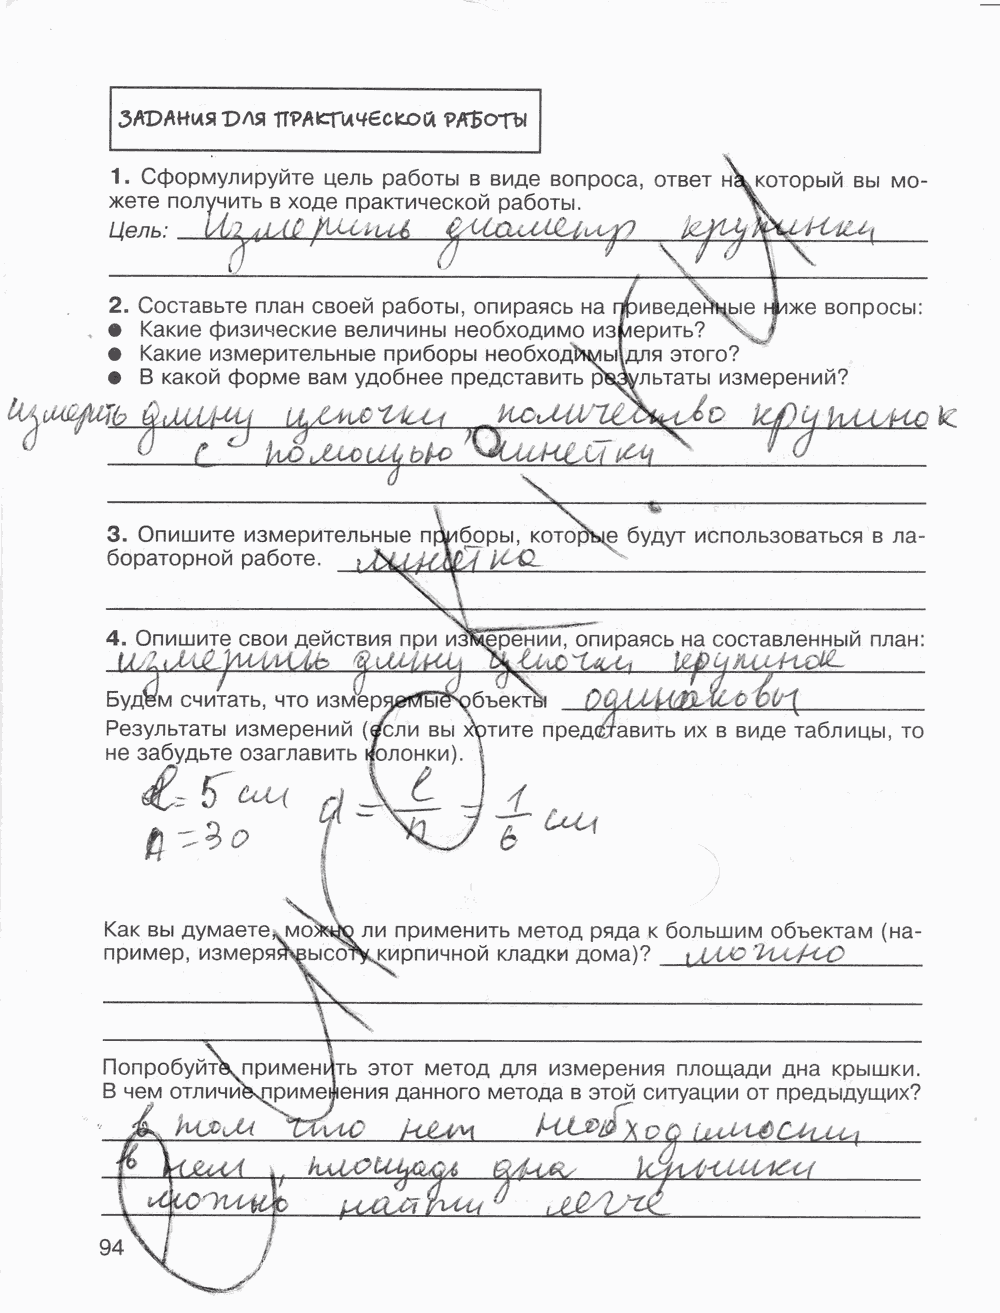 ЗАДАНИЯ ДЛЯ ПРАКТИЧЕСКОЙ РАБОТЫ
1. Сформулируйте цель работы в виде вопроса, ответ на который вы мо-
жете получить в ходе практической работы.
Цель: Измерить диаметр крупинки
2. Составьте план своей работы, опираясь на приведенные ниже вопросы:
● Какие физические величины необходимо измерить?
● Какие измерительные приборы необходимы для этого?
● В какой форме вам удобнее представить результаты измерений?
измерить длину цепочки, количество крупинок
с помощью линейки
3. Опишите измерительные приборы, которые будут использоваться в ла-
бораторной работе. линейка
4. Опишите свои действия при измерении, опираясь на составленный план:
измерить длину цепочки крупинок
Будем считать, что измеряемые объекты одинаковы
Результаты измерений (если вы хотите представить их в виде таблицы, то
не забудьте озаглавить колонки).
l = 5 см
n = 30
d = l/n = 1/6 см
Как вы думаете, можно ли применить метод ряда к большим объектам (на-
пример, измеряя высоту кирпичной кладки дома)? можно
Попробуйте применить этот метод для измерения площади дна крышки.
В чем отличие применения данного метода в этой ситуации от предыдущих?
в том что нет необходимости
в нем, площадь дна крышки
можно найти легче
94